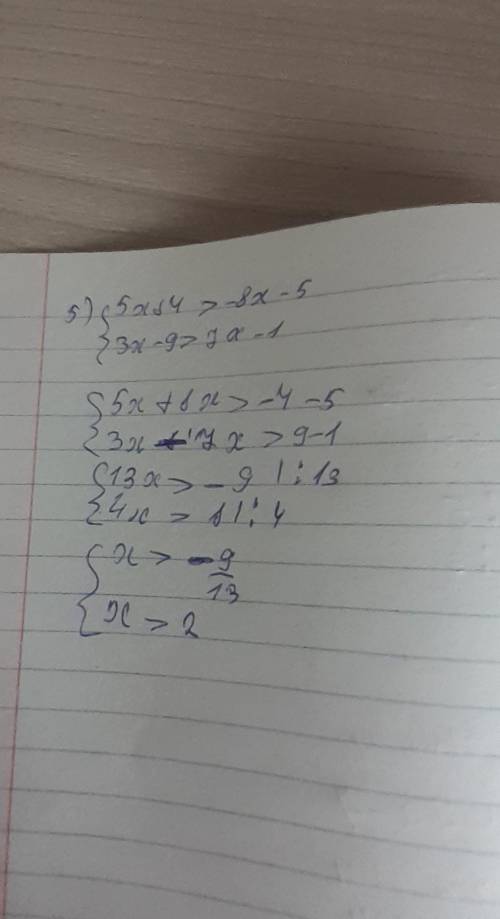 5) { 5x+4 > -8x - 5
{ 3x - 9 > 7x - 1
{ 5x + 8x > -4 - 5
{ 3x - 7x > 9 - 1
{ 13x > -9 | : 13
{ 4x > 8 | : 4
{ x > -9/13
{ x > 2